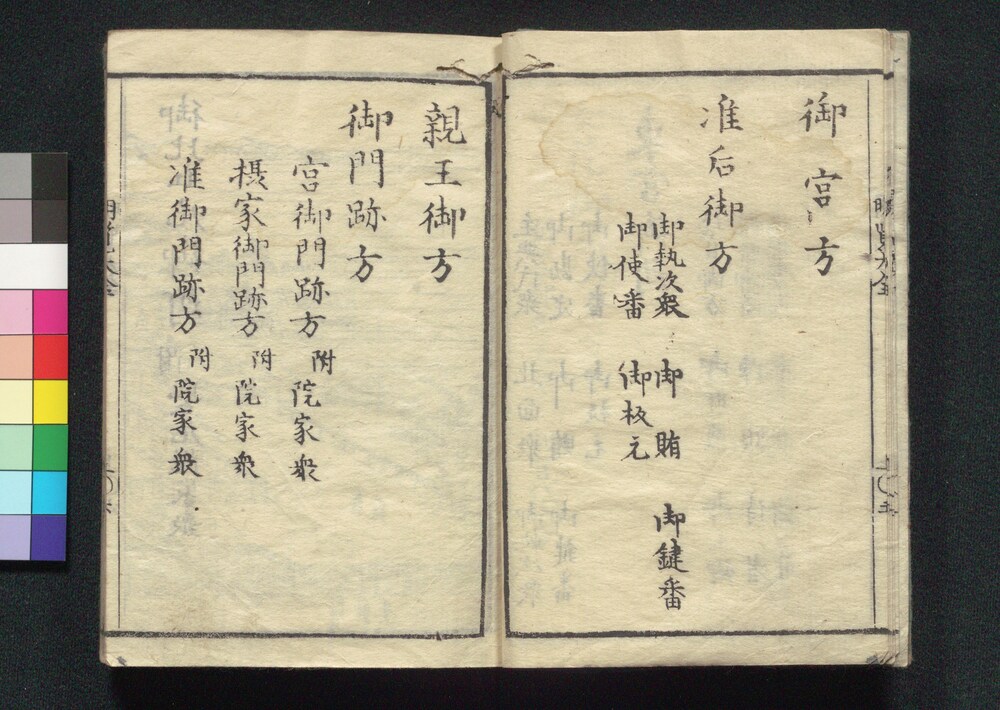 御宮方
准后御方
御執次衆 御賄 御鍵番
御使番 御板元
親王御方
御門跡方
宮御門跡方 附 院家衆
摂家御門跡方 附 院家衆
准御門跡方 附 院家衆